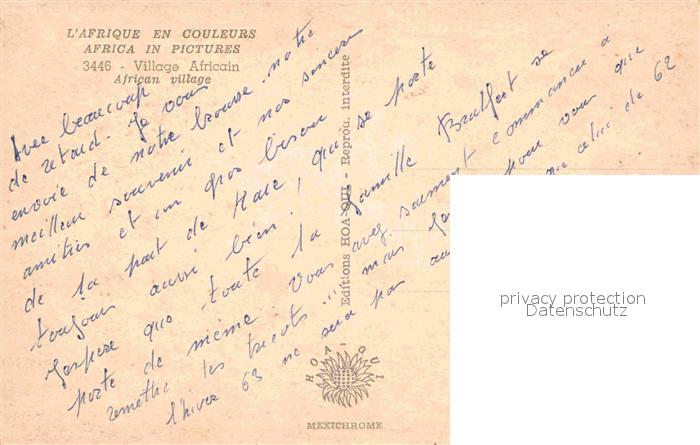 L'AFRIQUE EN COULEURS
AFRICA IN PICTURES
3446 - Village Africain
African village
Avec beaucoup
de retard. Je vous
envoie de notre brousse notre
meilleur souvenir et nos sincères
amitiés et un gros bisou
de la part de qui se porte
toujours aussi bien!
J'espère que toute la famille se
porte de même. Vous avez surement commancer à
remettre les tricots!!! mais pour vous que
l'hiver 63 ne sera pas au que celui de 62
Editions HOA-QUI - Reprod. interdite
HOA-QUI
MEXICHROME
privacy protection
Datenschutz